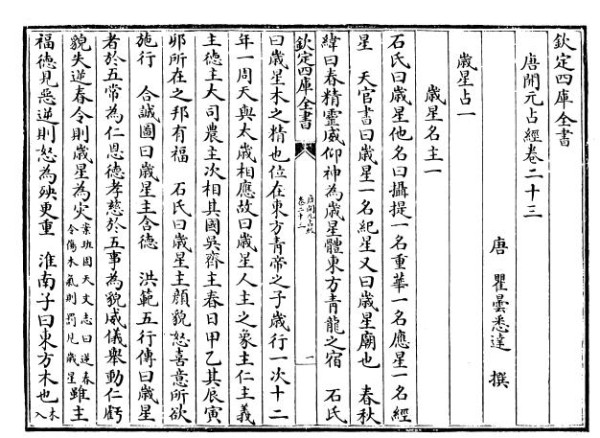 欽定四庫全書
唐開元占經卷二十三
唐 瞿曇悉達 撰
歲星占一
歲星名主一
石氏曰歲星他名曰攝提一名重華一名應星一名經
星 天官書曰歲星一名紀星又曰歲星廟也 春秋
緯曰春精靈威仰神為歲星體東方青龍之宿 石氏
欽定四庫全書
唐開元占經
卷二十三
一
曰歲星木之精也位在東方青帝之子歲行一次十二
年一周天與太歲相應故曰歲星人主之象主仁主義
主德主大司農主次相其國吳齊主春日甲乙其辰寅
卯所在之邦有福 石氏曰歲星主顔貌怒喜意所欲
施行 合誠圖曰歲星主含德 洪範五行傳曰歲星
者於五常為仁恩德孝慈於五事為貌威儀舉動仁虧
貌失逆春令則歲星為災案班固天文志曰逆春令傷木氣則罰見歲星雖主
福德見惡逆則怒為殃更重 淮南子曰東方木也木入